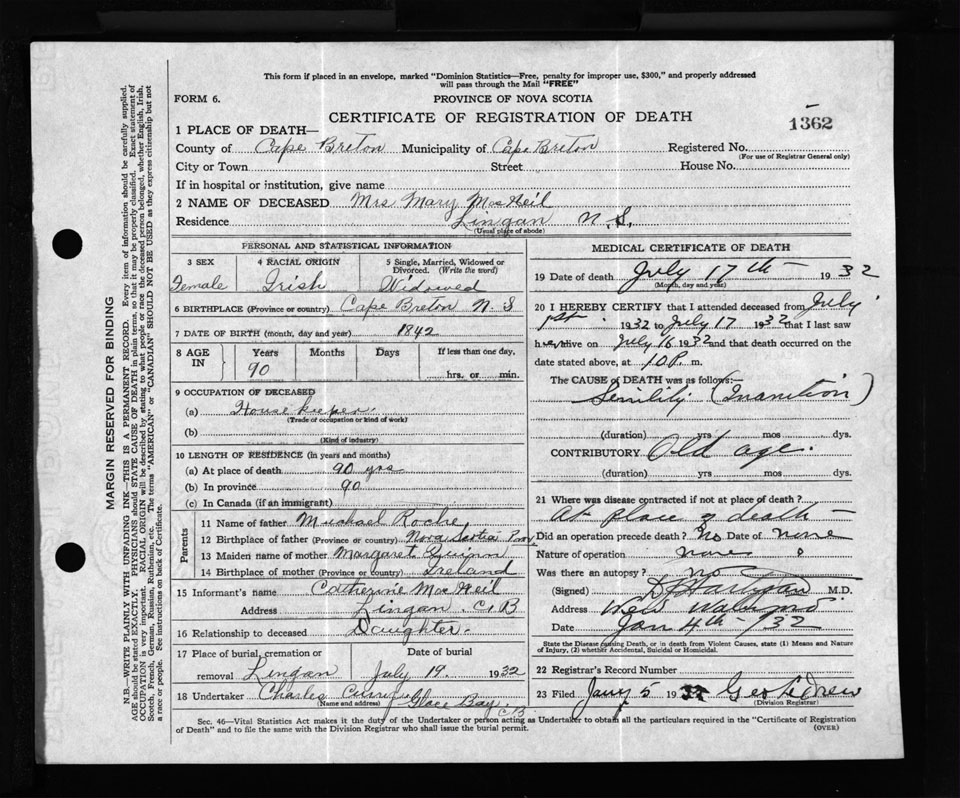 This form if placed in an envelope, marked "Dominion Statistics—Free, penalty for improper use, $300," and properly addressed
will pass through the Mail "FREE"
FORM 6.
PROVINCE OF NOVA SCOTIA
CERTIFICATE OF REGISTRATION OF DEATH
1362
1 PLACE OF DEATH—
County of Cape Breton Municipality of Cape Breton Registered No.
(For use of Registrar General only)
City or Town Street House No.
If in hospital or institution, give name
2 NAME OF DECEASED Mrs Mary MacNeil
Residence Lingan N.S.
(Usual place of abode)
PERSONAL AND STATISTICAL INFORMATION
3 SEX 4 RACIAL ORIGIN 5 Single, Married, Widowed or
Divorced. (Write the word)
Female Irish Widowed
6 BIRTHPLACE (Province or country) Cape Breton N. S
7 DATE OF BIRTH (month, day and year) 1842
8 AGE IN Years Months Days If less than one day,
90 hrs. or min.
9 OCCUPATION OF DECEASED
(a) House keeper
(Trade or occupation or kind of work)
(b)
(Kind of industry)
10 LENGTH OF RESIDENCE (in years and months)
(a) At place of death 90 yrs
(b) In province 90
(c) In Canada (if an immigrant)
Parents
11 Name of father Michael Roche
12 Birthplace of father (Province or country) Nova Scotia Prov
13 Maiden name of mother Margaret Quinn
14 Birthplace of mother (Province or country) Ireland
15 Informant's name Catherine MacNeil
Address Lingan C.B
16 Relationship to deceased Daughter.
17 Place of burial, cremation or Date of burial
removal Lingan July 19. 1932
18 Undertaker Charles Curry
(Name and address) Glace Bay C.B
MEDICAL CERTIFICATE OF DEATH
19 Date of death July 17th 1932
(Month, day and year)
20 I HEREBY CERTIFY that I attended deceased from July
1st 1932 to July 17 1932 that I last saw
h er alive on July 16 1932 and that death occurred on the
date stated above, at 10 P. m.
The CAUSE of DEATH was as follows:—
Senility (Inanition)
(duration) yrs mos dys.
CONTRIBUTORY Old age.
(duration) yrs. mos. dys.
21 Where was disease contracted if not at place of death?
At place of death
Did an operation precede death? No Date of none
Nature of operation none
Was there an autopsy? no
(Signed) M.D.
Address New
Date Jan 4th - 932
State the Disease causing Death, or in death from Violent Causes, state (1) Means and Nature
of Injury, (2) whether Accidental, Suicidal or Homicidal.
22 Registrar's Record Number
23 Filed Jany 5 19 Geo Ledrew
(Division Registrar)
Sec. 46—Vital Statistics Act makes it the duty of the Undertaker or person acting as Undertaker to obtain all the particulars required in the "Certificate of Registration
of Death" and to file the same with the Division Registrar who shall issue the burial permit.
(OVER)
MARGIN RESERVED FOR BINDING
N.B.—WRITE PLAINLY WITH UNFADING INK—THIS IS A PERMANENT RECORD. Every item of information should be carefully supplied.
AGE should be stated EXACTLY. PHYSICIANS should STATE CAUSE OF DEATH in plain terms, so that it may be properly classified. Exact statement of
OCCUPATION is very important. RACIAL ORIGIN will be described by stating to what people or race the deceased person belonged, whether English, Irish,
Scotch, French, German, Russian, Ruthenian, etc. The terms "AMERICAN" or "CANADIAN" SHOULD NOT BE USED as they express citizenship but not
a race or people. See instructions on back of Certificate.